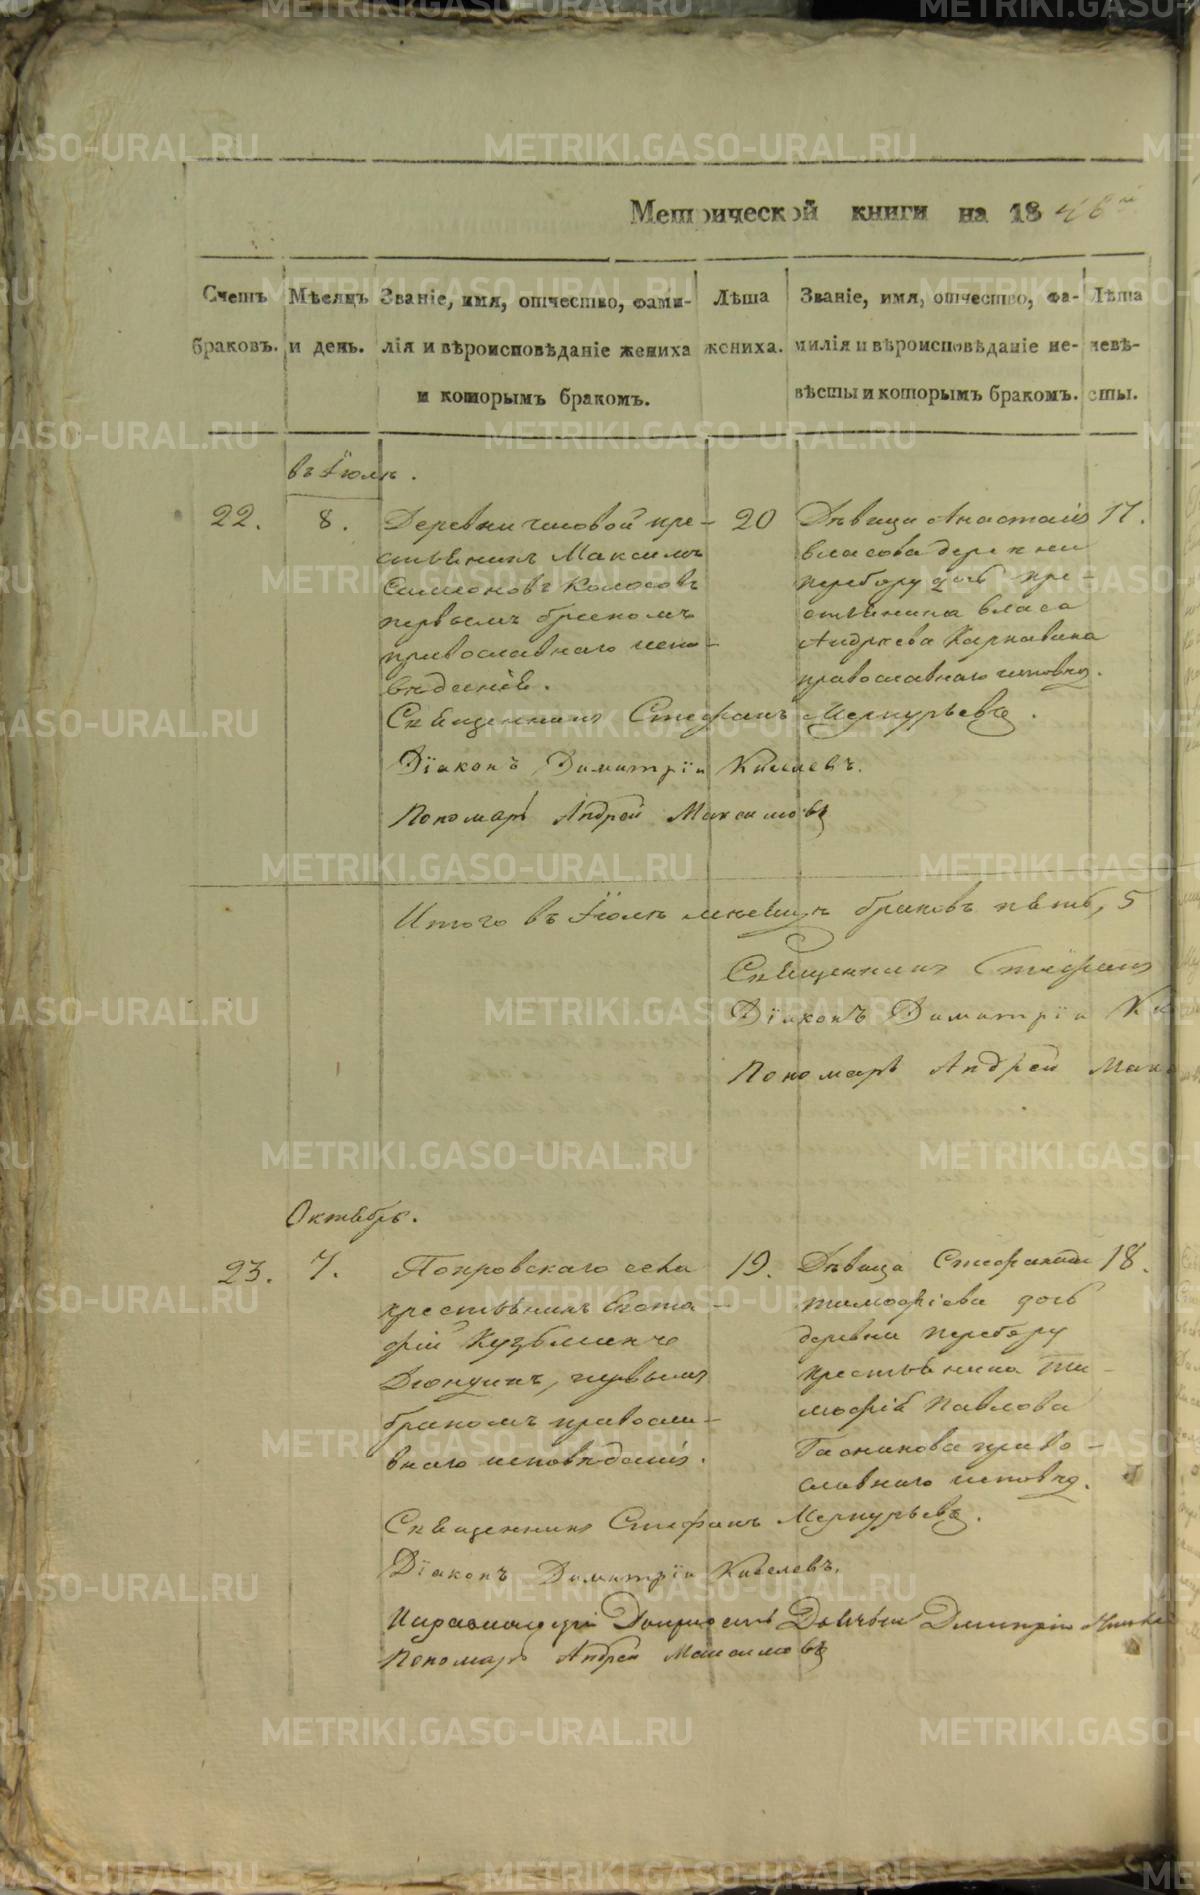 Метрической книги на 1846й
Счетъ
браковъ.
Мѣсяцъ
и день.
Званіе, имя, отчество, фами-
лія и вѣроисповѣданіе жениха
и которымъ бракомъ.
Лѣта
жениха.
Званіе, имя, отчество, фа-
милія и вѣроисповѣданіе не-
вѣсты и которымъ бракомъ.
Лѣта
невѣ-
сты.
въ Іюлѣ.
22.
8.
Деревни кре-
стьянинъ Максимъ
Симеоновъ Колосовъ
первымъ бракомъ
православнаго испо-
вѣданія.
20
Дѣвица Анастасія
Власова деревни
Перебору дочь кре-
стьянина Власа
Андреева
православнаго исповѣд.
17.
Священникъ Стефанъ Меркурьевъ.
Діаконъ Димитрій Киселевъ.
Пономарь Андрей Максимовъ
Итого въ Іюлѣ мѣсяцѣ браковъ пять, 5
Священникъ Стефанъ
Діаконъ Димитрій Ки
Пономарь Андрей Макс
Октябрь.
23.
7.
Покровскаго села
крестьянинъ
Кузьминъ
первымъ
бракомъ правосла-
внаго исповѣданія.
19.
Дѣвица Стефанида
Тимофіева дочь
деревни Перебору
крестьянина Ти-
мофія Павлова
право-
славнаго исповѣд.
18.
Священникъ Стефанъ Меркурьевъ.
Діаконъ Димитрій Киселевъ.
Дмитрій
Пономарь Андрей Максимовъ
METRIKI.GASO-URAL.RU